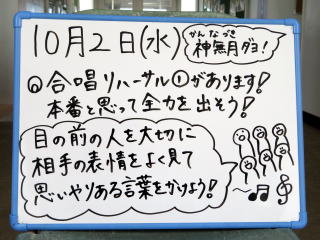 10月2日(水)
かんなづき
神無月ダヨ!
合唱リハーサル①があります!
本番と思って全力を出そう!
目の前の人を大切に
相手の表情をよく見て
思いやりある言葉をかけよう!